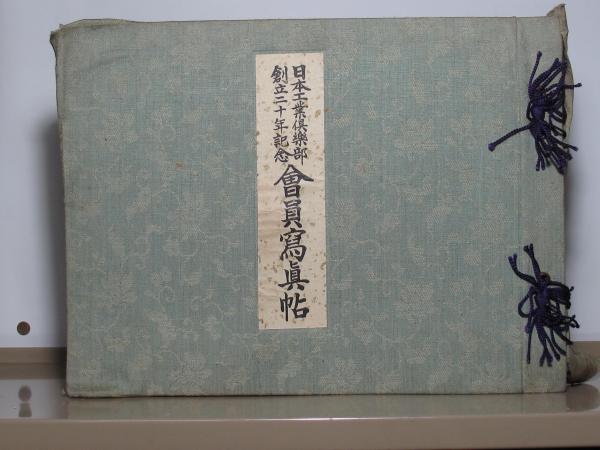 日本工業俱樂部
創立二十年記念
會員寫眞帖